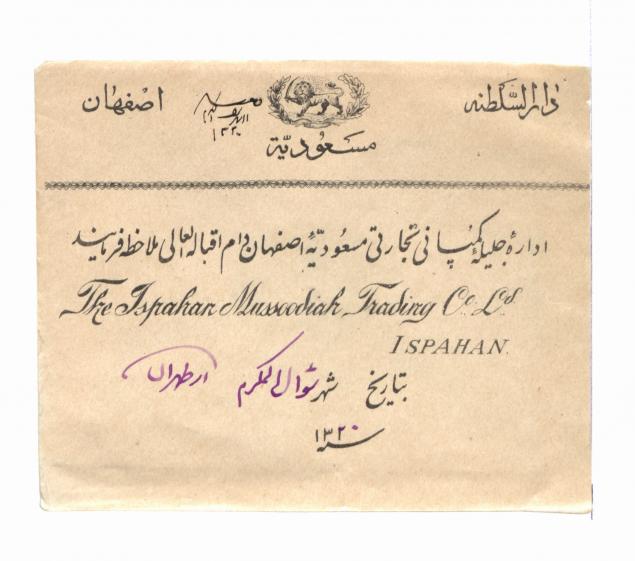 دارالسَّلطنه اصفهان
مسعودیّة
ادارهٔ جلیلهٔ کمپانی تجارتی مسعودیّهٔ اصفهان دام اقباله العالی ملاحظه فرمایند
The Ispahan Mussoodiah Trading Co. Ld.
ISPAHAN.
بتاریخ شهر شوال المکرم از طهران
سنه ۱۳۲۰